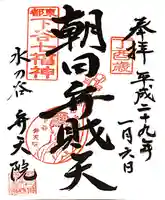 奉拝
平成二十九年
一月六日
丁酉歳
朝日弁財天
東都
下谷七福神
水の谷
弁天院